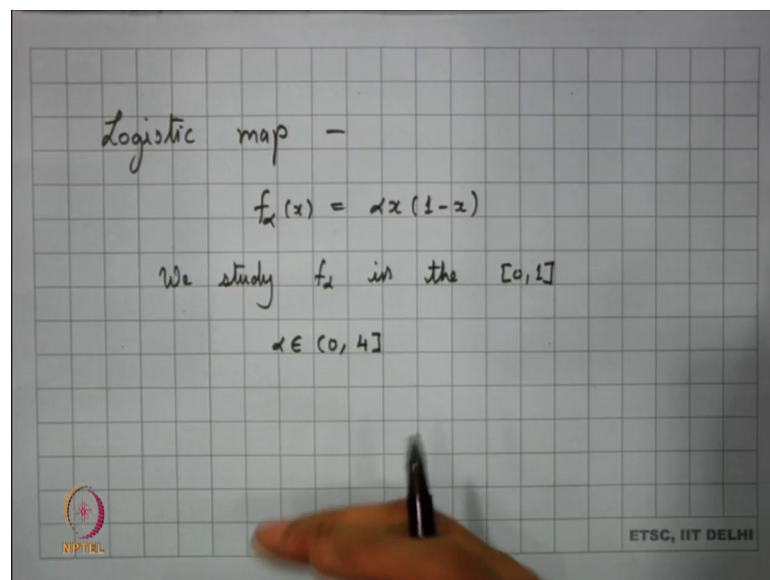 Logistic map -
f_α(x) = αx(1-x)
We study f_α in the [0,1]
α ∈ (0, 4]
NPTEL
ETSC, IIT DELHI